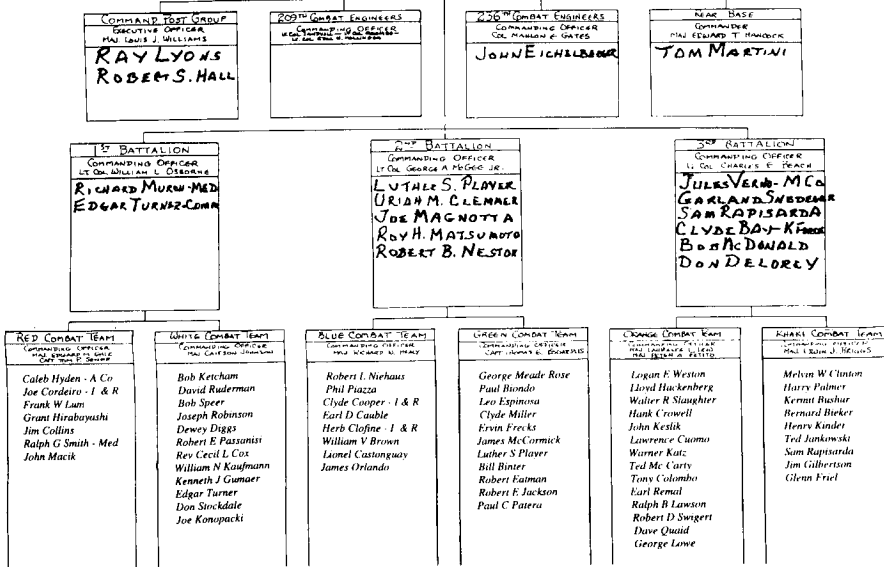 COMMAND POST GROUP
EXECUTIVE OFFICER
MAJ LOUIS J. WILLIAMS
RAY LYONS
ROBERT S. HALL
209TH COMBAT ENGINEERS
COMMANDING OFFICER
236TH COMBAT ENGINEERS
COMMANDING OFFICER
COL MAHLON E GATES
JOHN EICHELBERGER
REAR BASE
COMMANDER
MAJ EDWARD T HANCOCK
TOM MARTINI
1ST BATTALION
COMMANDING OFFICER
LT COL WILLIAM L OSBORNE
RICHARD MURCH-MED
EDGAR TURNER-COMM
2ND BATTALION
COMMANDING OFFICER
LT COL GEORGE A MCGEE JR.
LUTHER S. PLAYER
URIAH M. CLEMMER
JOE MAGNOTTA
ROY H. MATSUMOTO
ROBERT B. NESTOR
3RD BATTALION
COMMANDING OFFICER
LT COL CHARLES E BEACH
JULES VERNO-M CO
GARLAND SNEDEGAR
SAM RAPISARDA
CLYDE BAY-K FORCE
BOB MCDONALD
DON DELOREY
RED COMBAT TEAM
COMMANDING OFFICER
Caleb Hyden - A Co
Joe Cordeiro - I & R
Frank W Lum
Grant Hirabayashi
Jim Collins
Ralph G Smith - Med
John Macik
WHITE COMBAT TEAM
COMMANDING OFFICER
MAJ CAIFSON JOHNSON
Bob Ketcham
David Ruderman
Bob Speer
Joseph Robinson
Dewey Diggs
Robert E Passanisi
Rev Cecil L Cox
William N Kaufmann
Kenneth J Gumaer
Edgar Turner
Don Stockdale
Joe Konopacki
BLUE COMBAT TEAM
COMMANDING OFFICER
MAJ RICHARD W. HEALY
Robert I. Niehaus
Phil Piazza
Clyde Cooper - I & R
Earl D Cauble
Herb Clofine - I & R
William V Brown
Lionel Castonguay
James Orlando
GREEN COMBAT TEAM
COMMANDING OFFICER
CAPT THOMAS E. BOGARDUS
George Meade Rose
Paul Biondo
Leo Espinosa
Clyde Miller
Ervin Frecks
James McCormick
Luther S Player
Bill Binter
Robert Eatman
Robert E Jackson
Paul C Patera
ORANGE COMBAT TEAM
COMMANDING OFFICER
MAJ LAWRENCE L. LEW
MAJ PETER A. PETITO
Logan E Weston
Lloyd Hackenberg
Walter R Slaughter
Hank Crowell
John Keslik
Lawrence Cuomo
Warner Katz
Ted Mc Carty
Tony Colombo
Earl Remal
Ralph B Lawson
Robert D Swigert
Dave Quaid
George Lowe
KHAKI COMBAT TEAM
COMMANDING OFFICER
MAJ EDWIN J. BRIGGS
Melvin W Clinton
Harry Palmer
Kermit Bushur
Bernard Bieker
Henry Kinder
Ted Jankowski
Sam Rapisarda
Jim Gilbertson
Glenn Friel